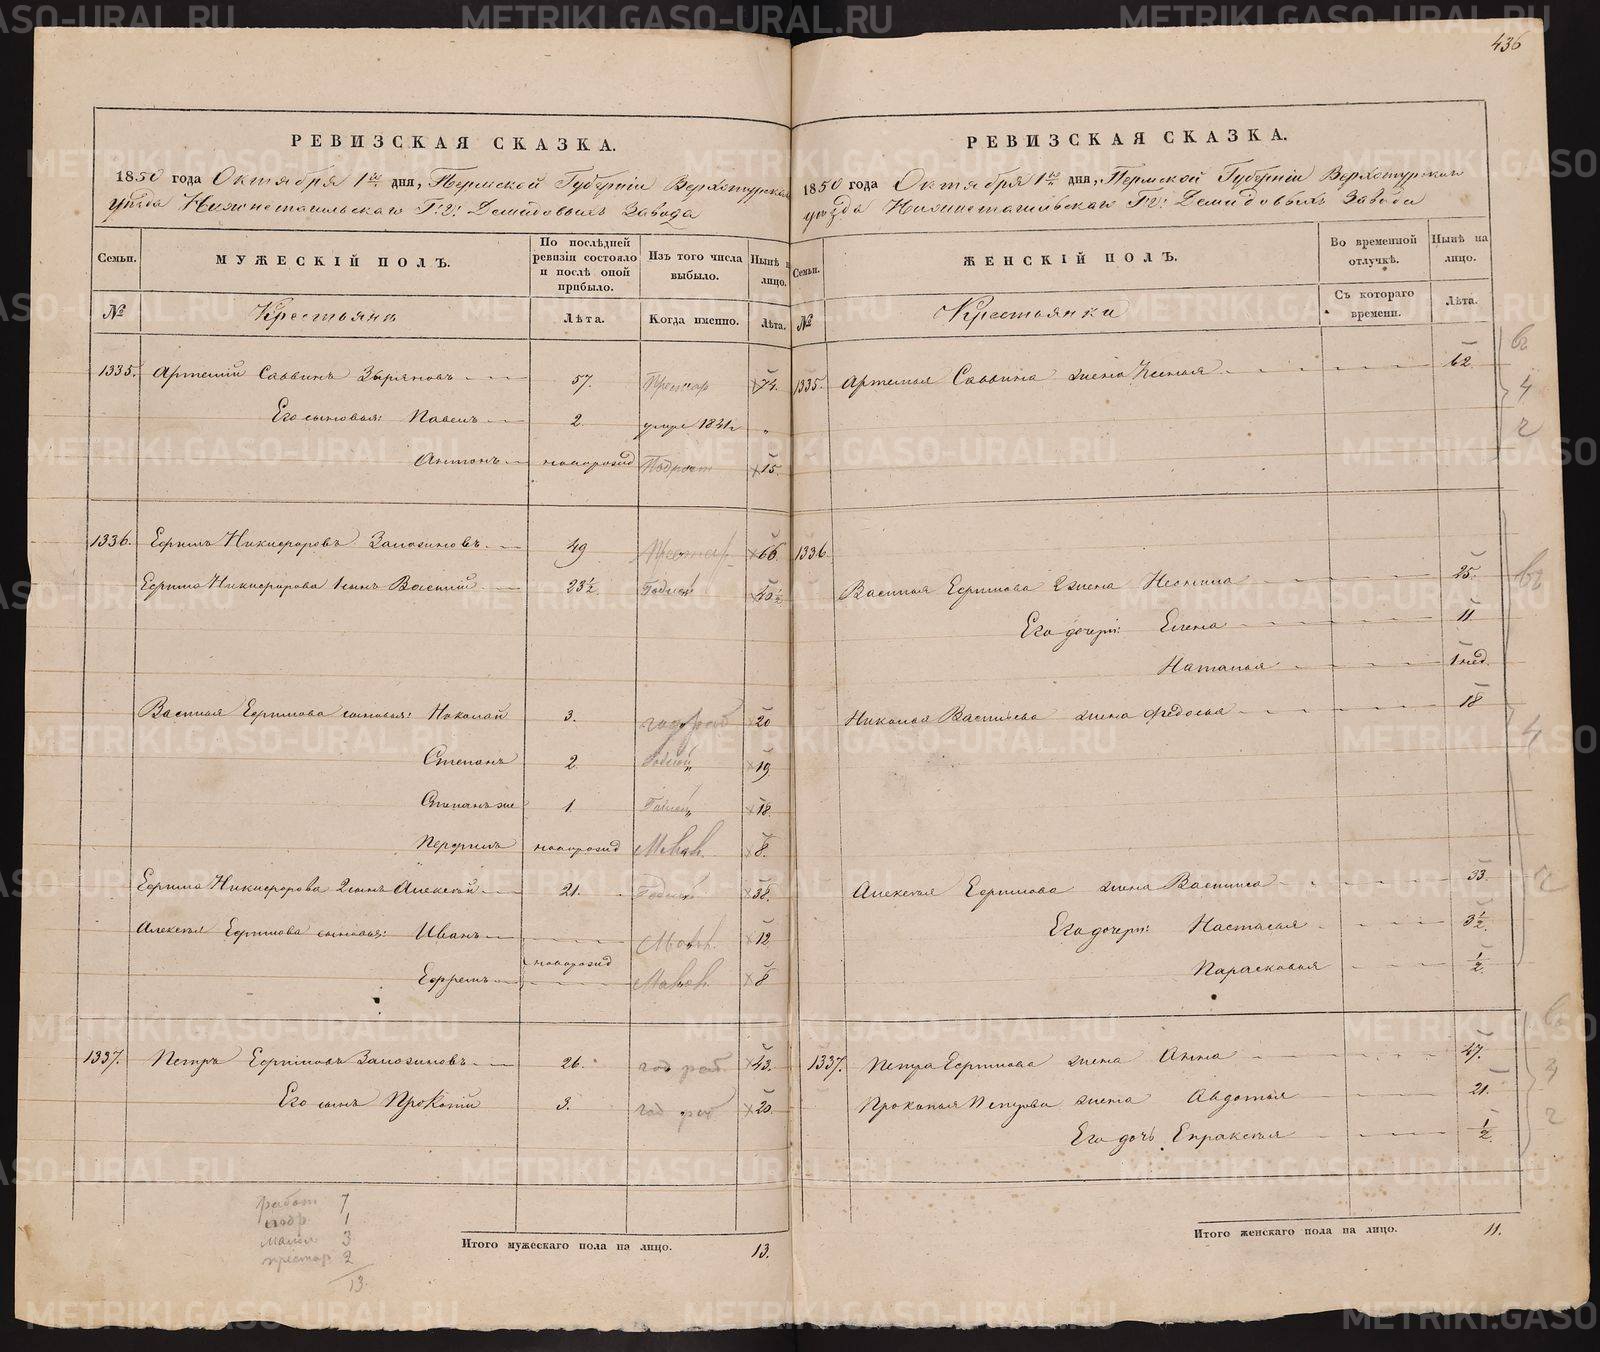 436
РЕВИЗСКАЯ СКАЗКА.
1850 года Октября 1го дня, Пермской Губерніи Верхотурска
уѣзда Нижнетагильскаго Г:г: Демидовыхъ Завода
Семьи. МУЖЕСКІЙ ПОЛЪ. По послѣдней ревизіи состояло и послѣ оной прибыло. Изъ того числа выбыло. Нынѣ н лицо.
№ Крестьянъ Лѣта. Когда именно. Лѣта.
1335. Артемій Саввинъ Зыряновъ 57. Престар 74.
Его сыновья: Павелъ 2. умре 1841г „
Антонъ новорожд Подрост 15.
1336. Ефимъ Никифоровъ 49 Престар. 66.
Ефима Никифорова 1 сынъ Василій 23½ Годной 40½
Василья Ефимова сыновья: Николай 3. год раб 20
Степанъ 2 Годной 19
Степанъ же 1. Годной 18.
Перфилъ новорожд Малол. 8.
Ефима Никифорова 2 сынъ Алексѣй 21. Годной 38.
Алексѣя Ефимова сыновья: Иванъ Малол. 12
новорожд
Ефремъ Малол. 8
1337. Петръ Ефимовъ 26. год раб 43.
Его сынъ Прокопій 3. год раб 20.
работ 7
подр 1
малол 3
престар 2
13.
Итого мужескаго пола на лицо. 13.
РЕВИЗСКАЯ СКАЗКА.
1850 года Октября 1го дня, Пермской Губерніи Верхотурскаго
уѣзда Нижнетагильскаго Г:г: Демидовыхъ Завода
Семьи. ЖЕНСКІЙ ПОЛЪ. Во временной отлучкѣ. Нынѣ на лицо.
№ Крестьянки Съ котораго времени. Лѣта.
1335. Артемья Саввина жена Ксенья 62
1336.
Василья Ефимова 2 жена Неонила 25.
Его дочери: Елена 11
Наталья 1 нед.
Николая Васильева жена Федосья 18
Алексѣя Ефимова жена Василиса 33.
Его дочери: Настасья 3½
Парасковья ½
1337. Петра Ефимова жена Анна 47.
Прокопья Петрова жена Авдотья 21.
Его дочь Евпраксѣя ½
Итого женскаго пола на лицо. 11.
METRIKI.GASO-URAL.RU